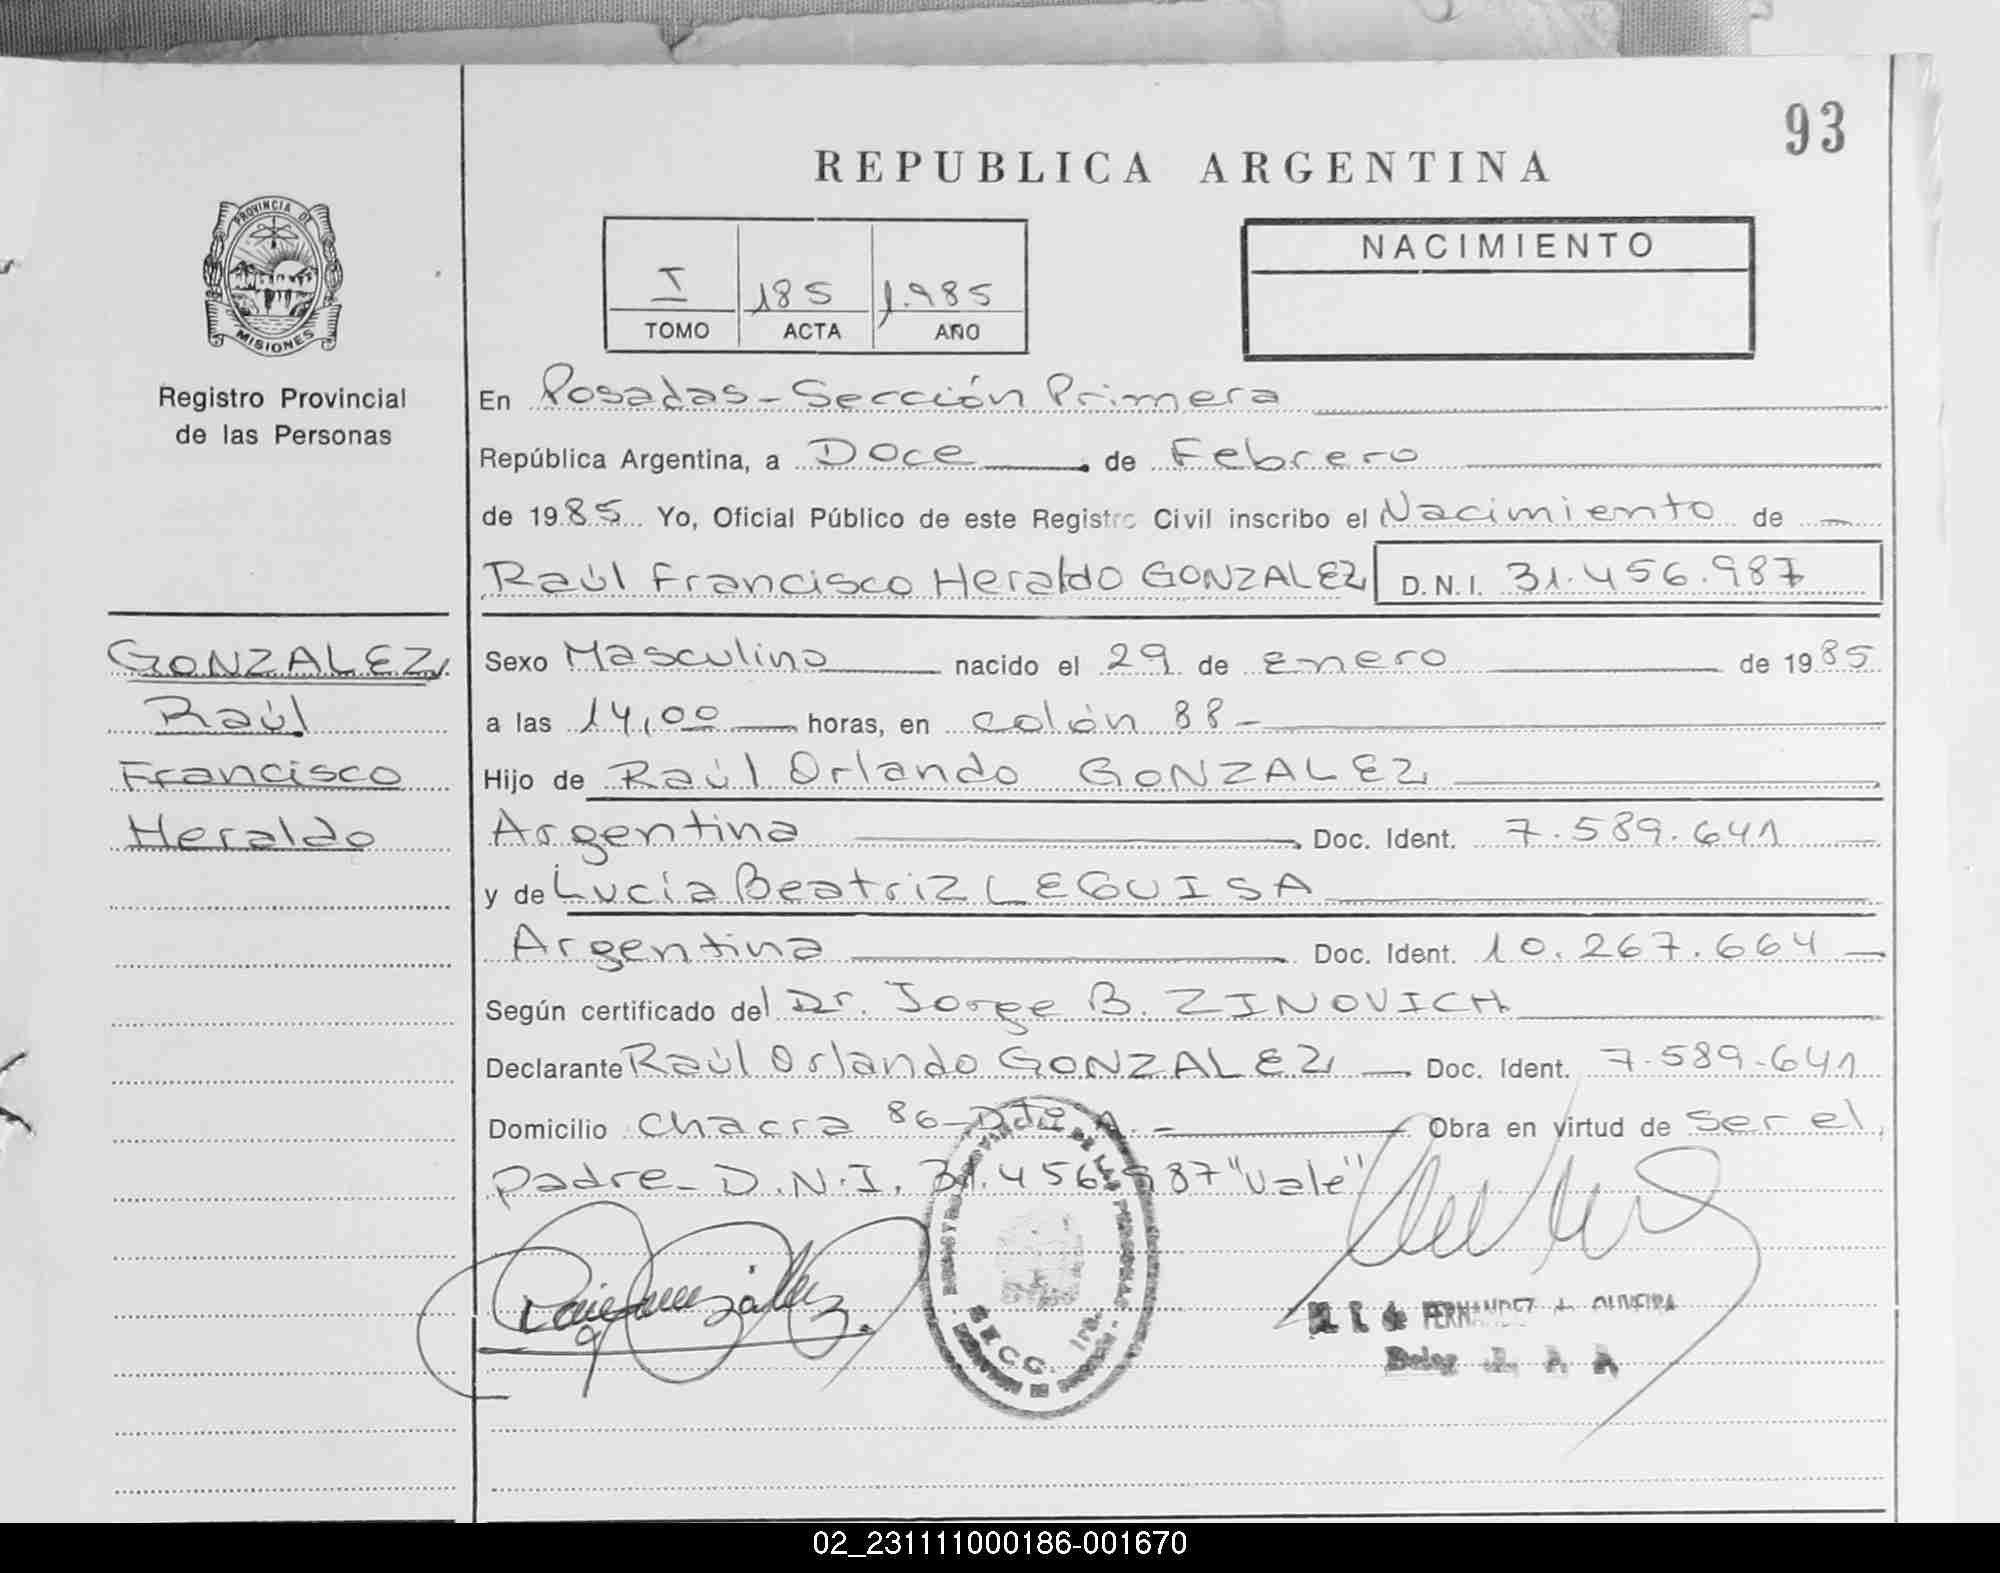 93
REPUBLICA ARGENTINA
PROVINCIA DE
MISIONES
Registro Provincial
de las Personas
I 185 1.985
TOMO ACTA AÑO
NACIMIENTO
En Posadas - Sección Primera
República Argentina, a Doce de Febrero
de 1985 Yo, Oficial Público de este Registro Civil inscribo el Nacimiento de
Raúl Francisco Heraldo GONZALEZ D.N.I. 31.456.987
GONZALEZ
Raúl
Francisco
Heraldo
Sexo Masculino nacido el 29 de Enero de 1985
a las 14,00 horas, en Colón 88 -
Hijo de Raúl Orlando GONZALEZ
Argentina Doc. Ident. 7.589.641
y de Lucía Beatriz LEGUISA
Argentina Doc. Ident. 10.267.664
Según certificado del Dr. Jorge B. ZINOVICH
Declarante Raúl Orlando GONZALEZ Doc. Ident. 7.589.641
Domicilio Chacra 86 - Dto A. - Obra en virtud de ser el
padre - D.N.I. 31.456.987 "Vale"
SECC. 1ra.
de FERNANDEZ OLIVEIRA
02_231111000186-001670